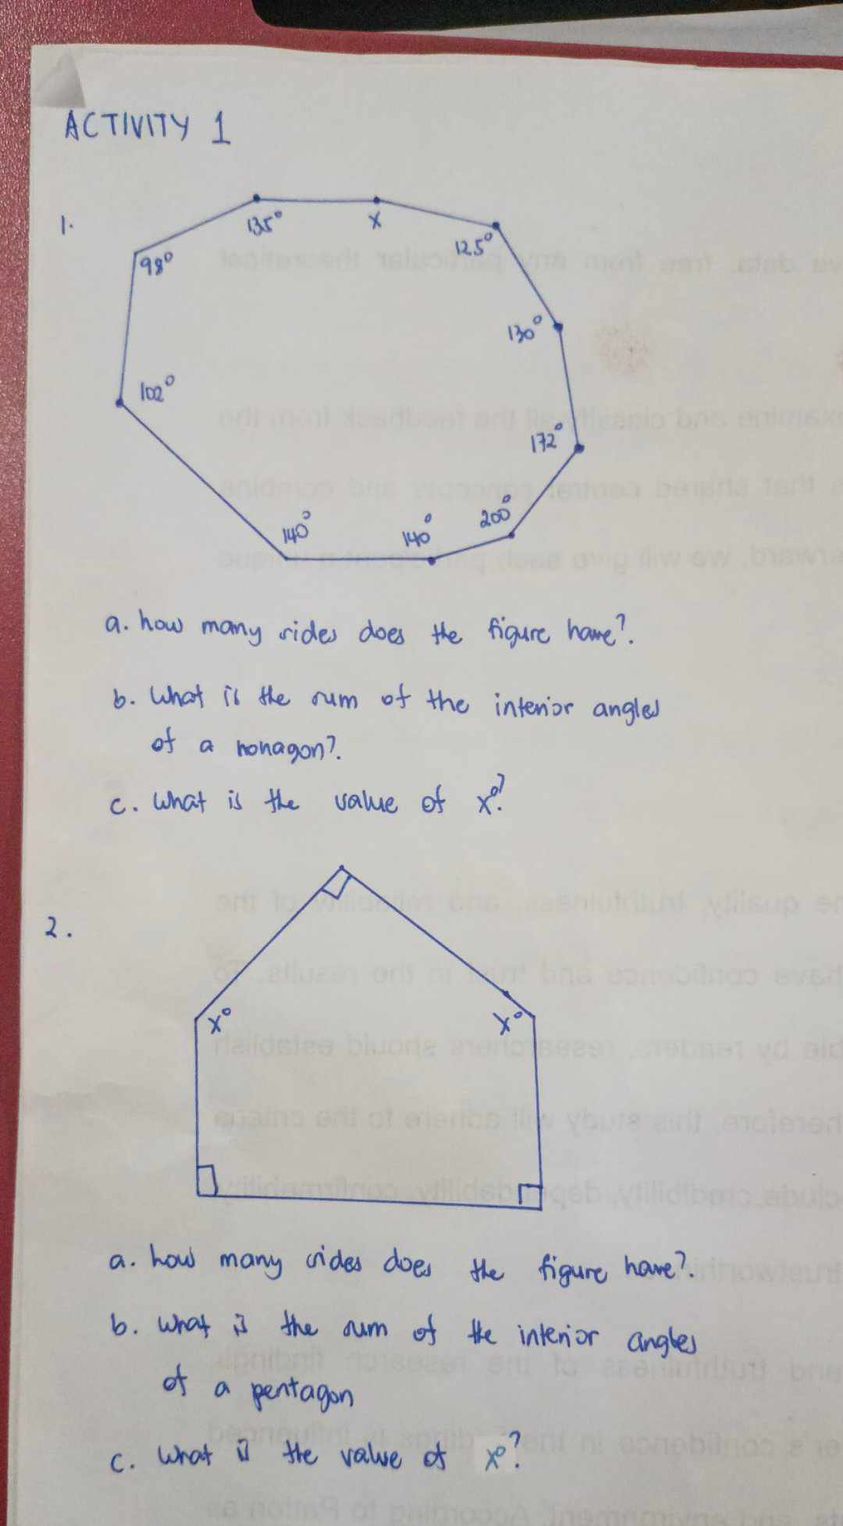 ACTIVITY 1
1.
135°
x
125°
98°
130°
102°
172°
200°
140°
140°
a. how many sides does the figure have?.
b. What is the sum of the interior angles
of a nonagon?.
c. What is the value of x°?
2.
x°
x°
a. how many sides does the figure have?.
b. What is the sum of the interior angles
of a pentagon
c. What is the value of x°?